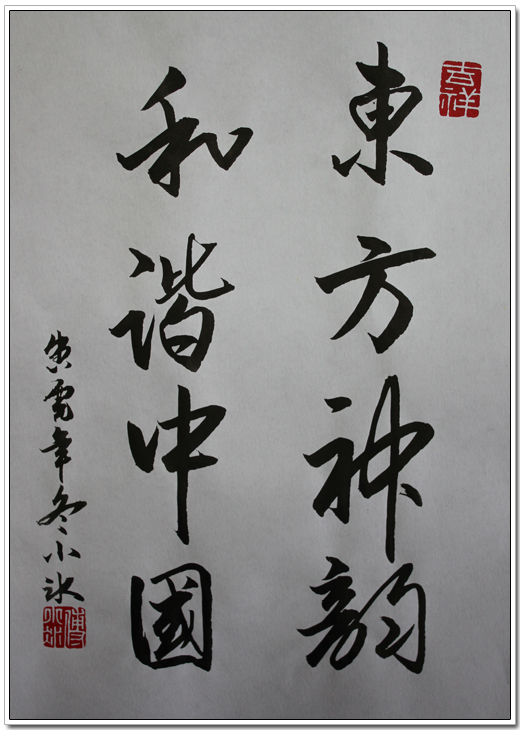 吉祥
東方神韵
和谐中國
庚寅年冬小冰